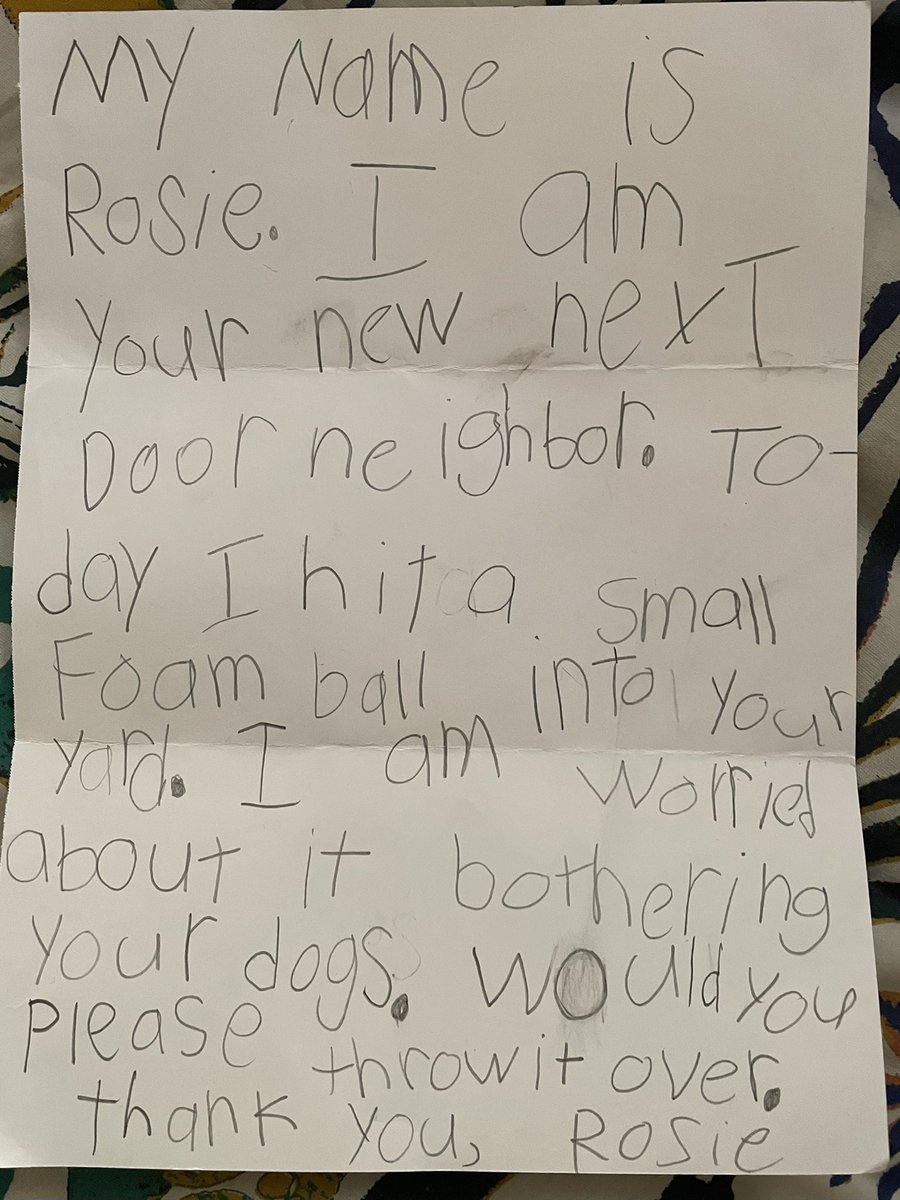 My Name is
Rosie. I am
your new nexT
Door neighbor. TO-
day I hit a small
Foam ball into your
yard. I am worried
about it bothering
your dogs. Would you
please throw it over.
thank you, Rosie